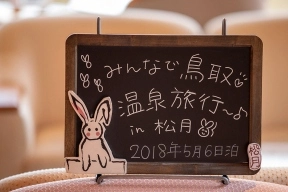 みんなで鳥取
温泉旅行~♪
in 松月
2018年5月6日泊
松月